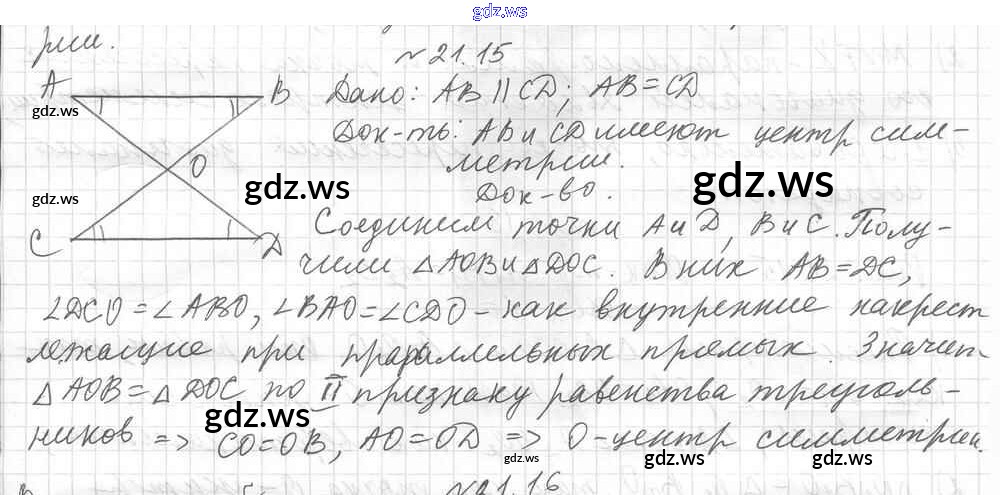 gdz.ws
рии.
№21.15
A B Дано: AB || CD; AB = CD
gdz.ws
Док-ть: AB и CD имеют центр сим-
метрии.
O
gdz.ws gdz.ws gdz.ws
Док-во.
C D Соединим точки A и D, B и C. Полу-
чили △AOB и △DOC. В них AB = DC,
∠DCO = ∠ABO, ∠BAO = ∠CDO – как внутренние накрест
лежащие при праралельных прямых. Значит
△AOB = △DOC по II признаку равенства треуголь-
gdz.ws
ников => CO = OB, AO = OD => O – центр симметрии.
gdz.ws gdz.ws gdz.ws
№21.16